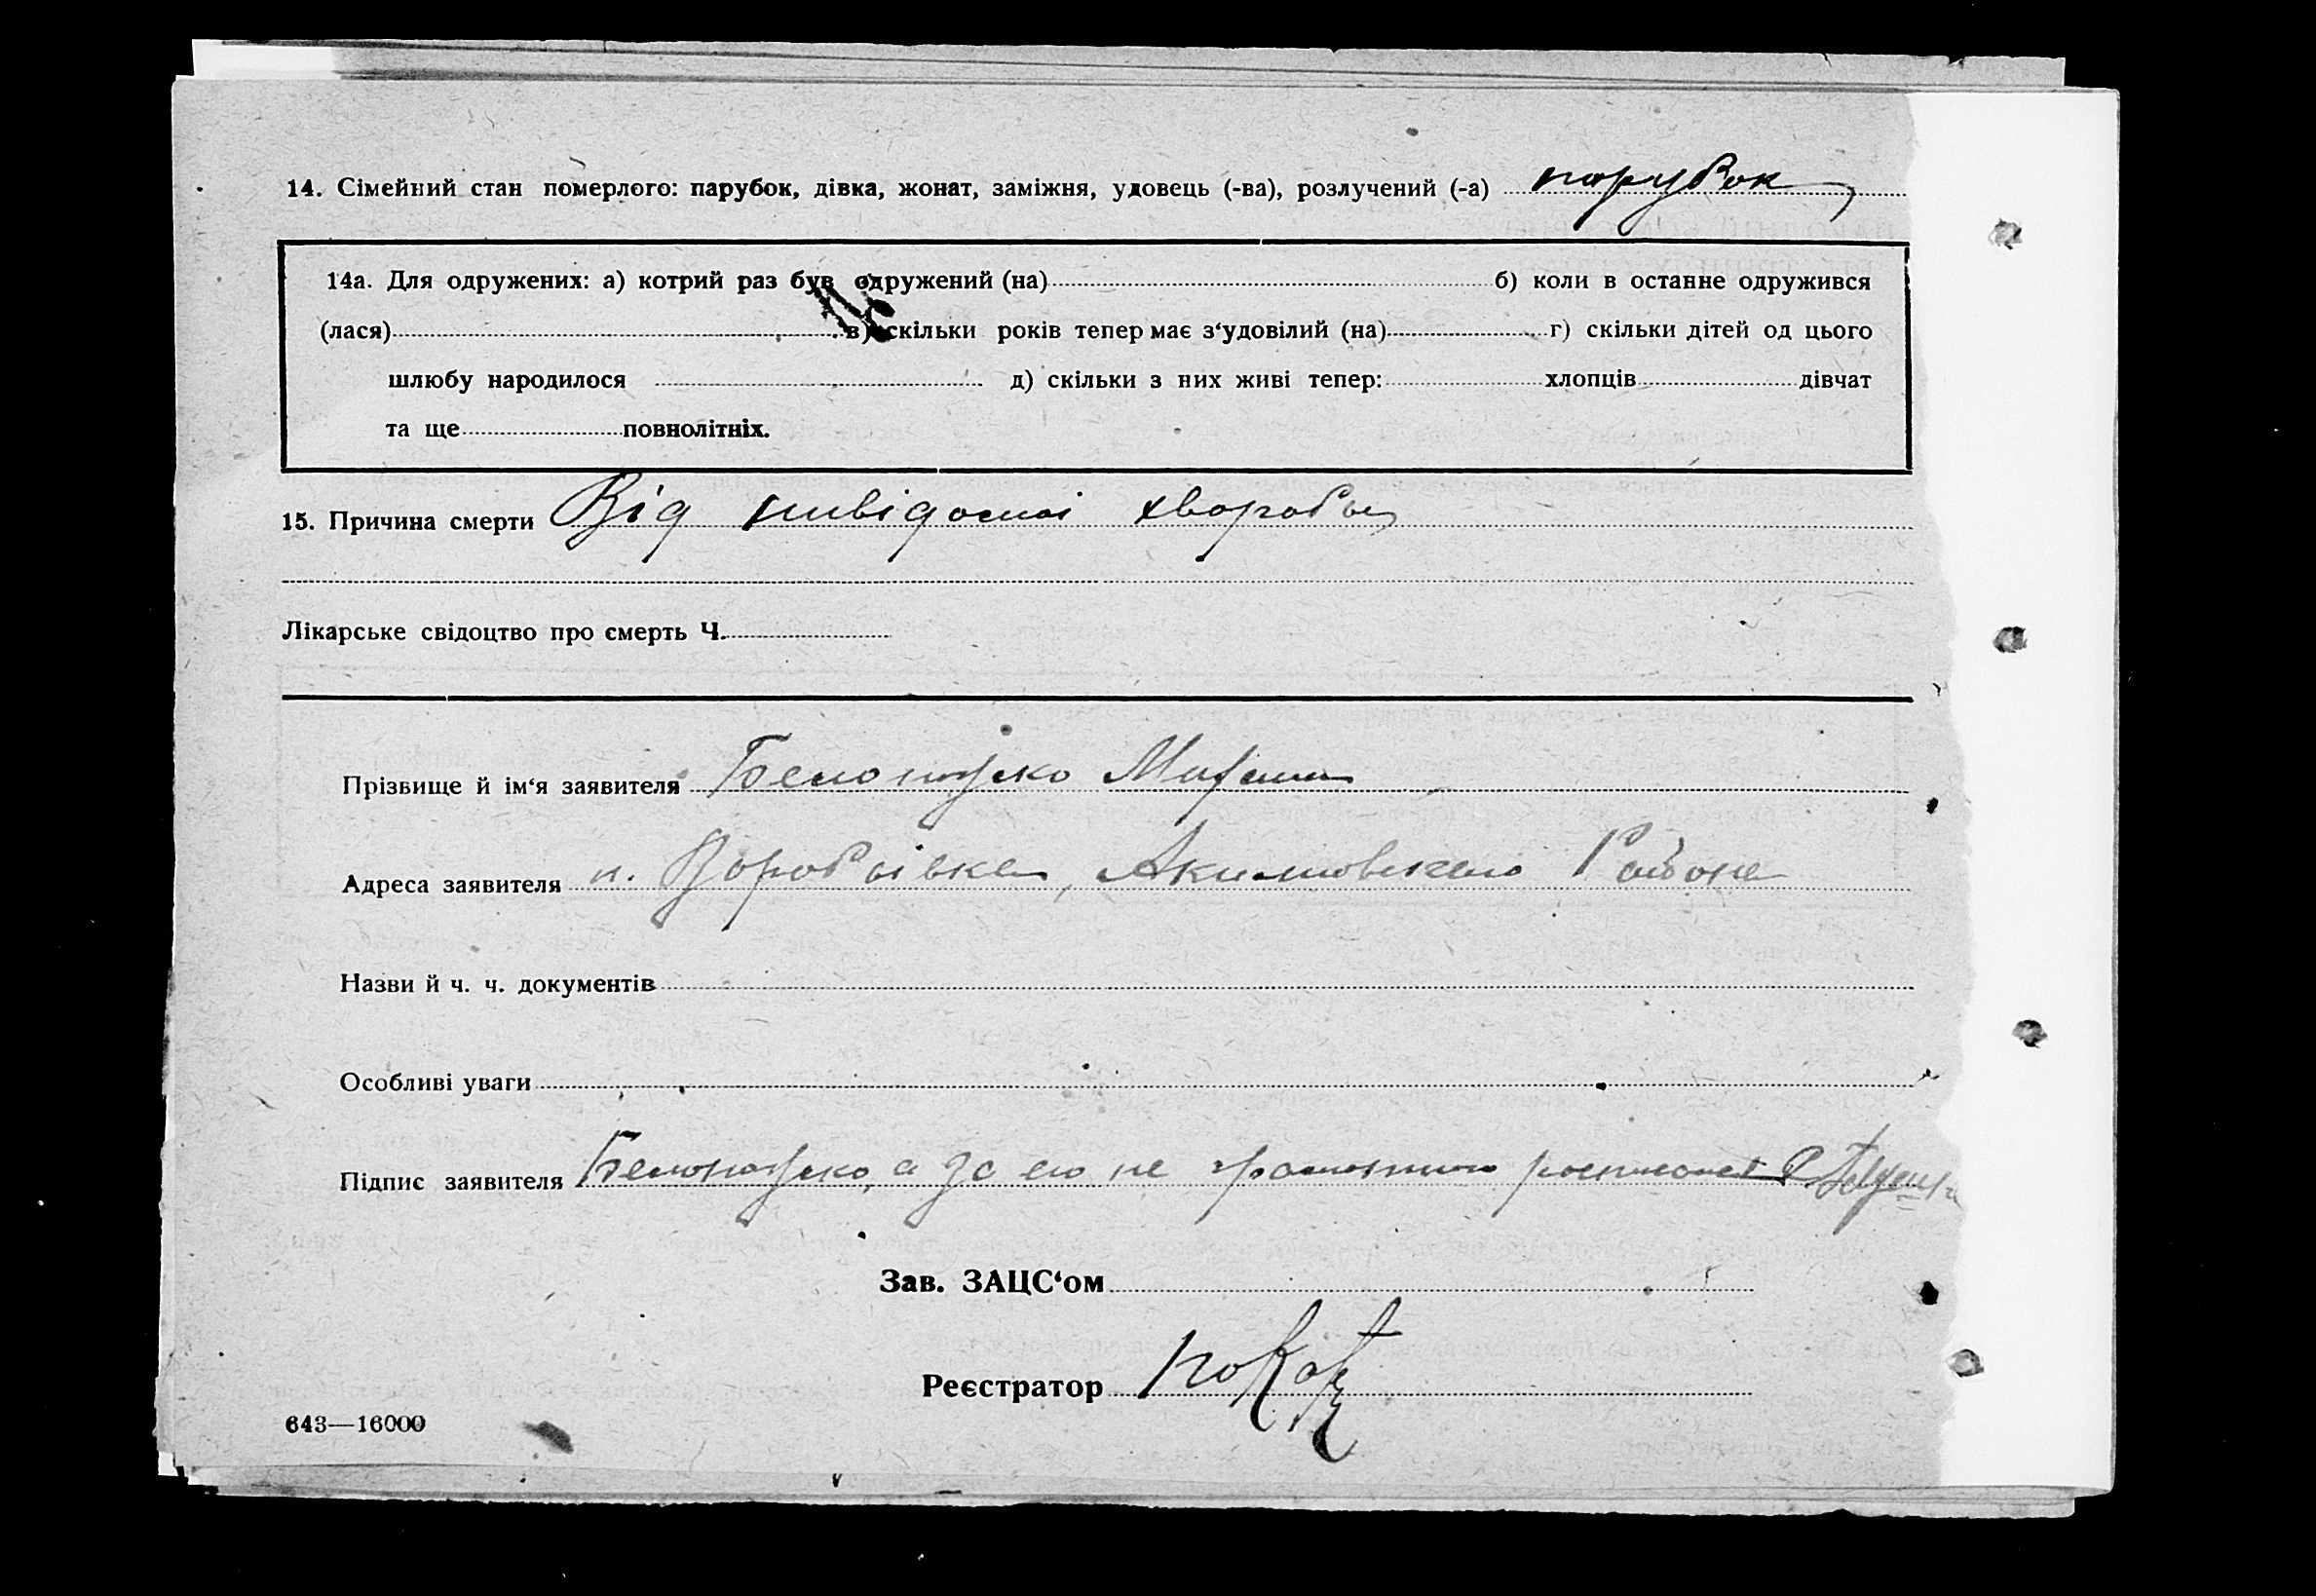 14. Сімейний стан померлого: парубок, дівка, жонат, заміжня, удовець (-ва), розлучений (-а) порубок
14а. Для одружених: а) котрий раз був одружений (на) б) коли в останне одружився
(лася) в) скільки років тепер має з‘удовілий (на) г) скільки дітей од цього
шлюбу народилося д) скільки з них живі тепер: хлопців дівчат
та ще повнолітніх.
15. Причина смерти Від хвороби
Лікарське свідоцтво про смерть Ч.
Прізвище й ім‘я заявителя
Адреса заявителя Района
Назви й ч. ч. документів
Особливі уваги
Підпис заявителя а за его не
Зав. ЗАЦС‘ом
Реєстратор
643—16000